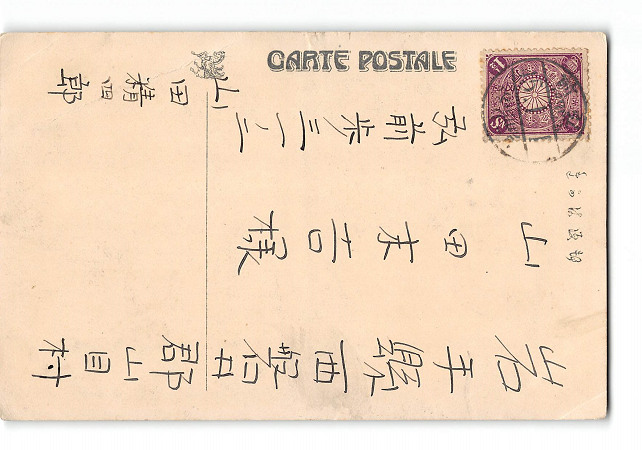 CARTE POSTALE
岩手縣西磐井
郡山目村
山田末吉様
弘前歩三一ノ二
山田精四郎